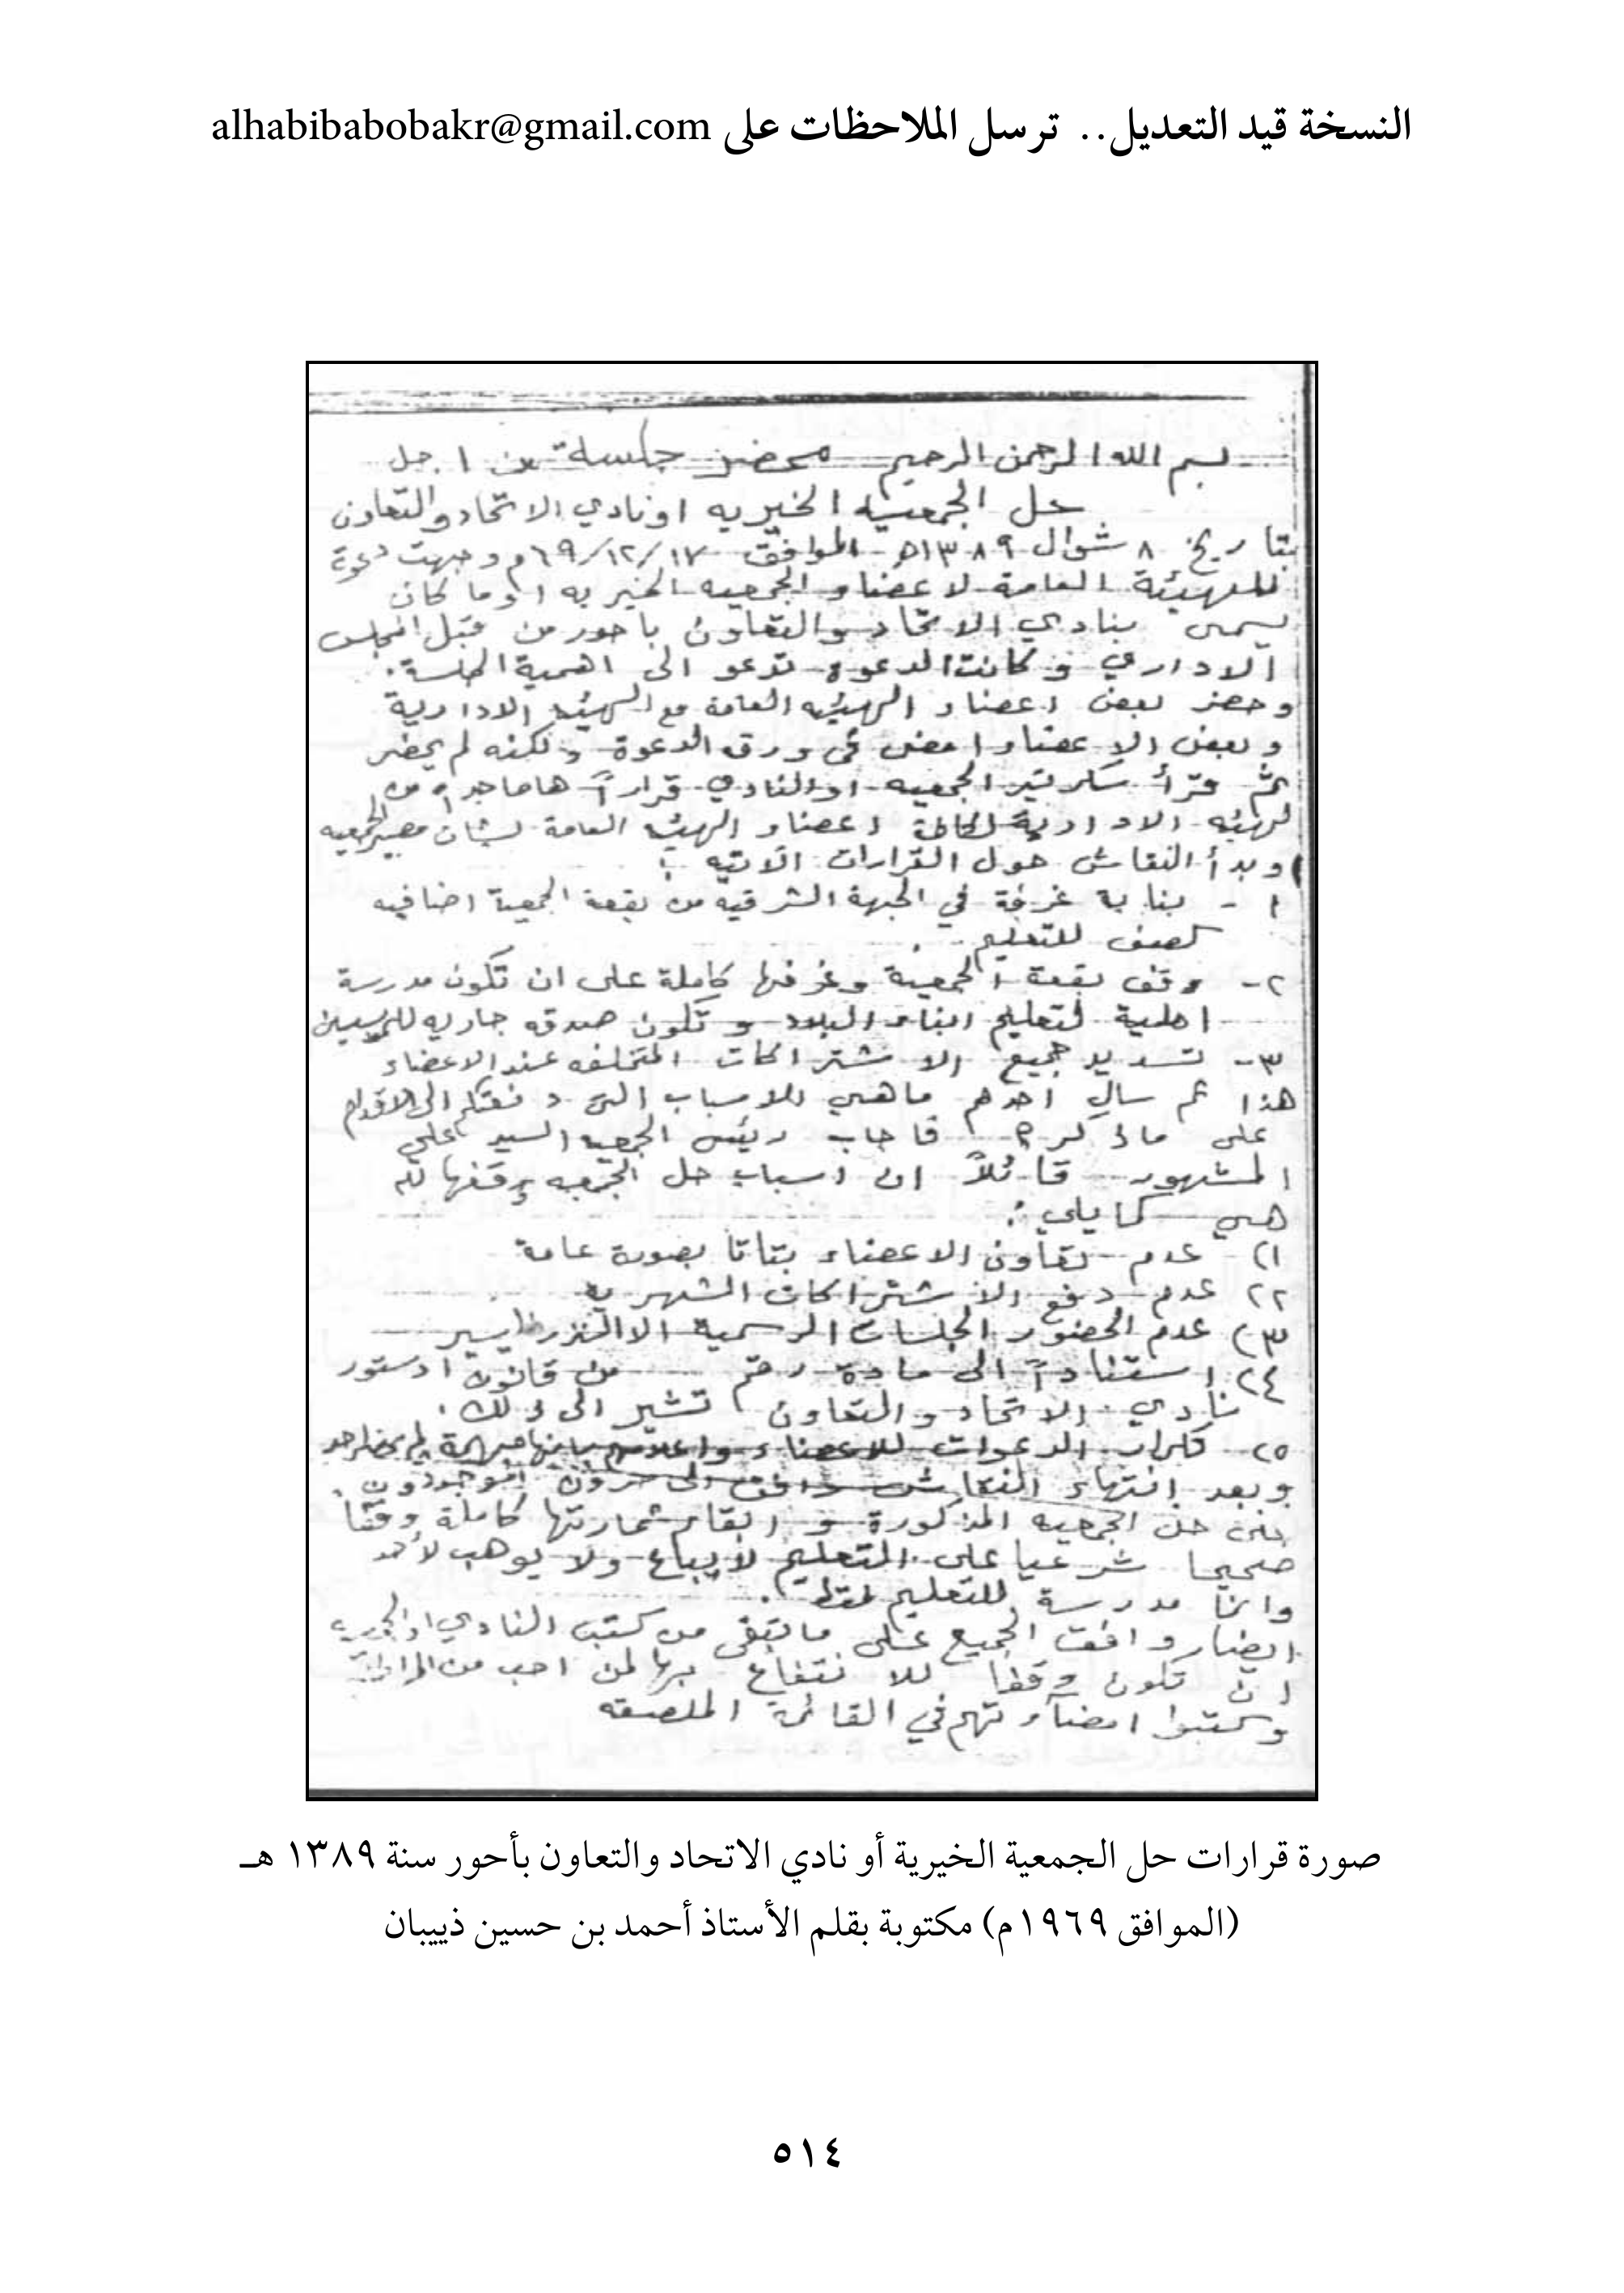 النسخة قيد التعديل.. ترسل الملاحظات على alhabibabobakr@gmail.com
بسم الله الرحمن الرحيم محضر جلسة من اجل
حل الجمعيه الخيريه او نادي الاتحاد والتعاون
بتاريخ ٨ شوال ١٣٨٩هـ الموافق ١٧/١٢/٦٩م وجهت دعوة
للهيئة العامة لاعضاء الجمعيه الخيريه او ما كان
يسمى بنادي الاتحاد والتعاون باحور من قبل المجلس
الاداري وكانت الدعوة تدعو الى اهمية الجلسة.
وحضر بعض اعضاء الهيئه العامة مع الهيئه الادارية
وبعض الاعضاء امضى في ورق الدعوة ولكنه لم يحضر
ثم قرأ سكرتير الجمعيه او النادي قراراً هاما من
الهيئه الادارية لكافة اعضاء الهيئه العامة بشان مصير الجمعيه
وبدأ النقاش حول القرارات الآتيه :
١ - بناية غرفة في الجبهة الشرقية من بقعة الجمعية اضافيه
كصف للتعليم .
٢ - وقف بقعة الجمعية وغرفها كاملة على ان تكون مدرسة
اهلية لتعليم ابناء البلاد وتكون صدقه جاريه للمؤسسين
٣ - تسديد جميع الاشتراكات المتخلفه عند الاعضاء
هذا ثم سال احدهم ماهي الاسباب التي دفعتكم الى الاقدام
على ماذكر ؟ فاجاب رئيس الجمعيه السيد علي
المشهور قائلاً ان اسباب حل الجمعيه ووقفها لله
هي كمايلي :
١) عدم تعاون الاعضاء بتاتا بصورة عامة
٢) عدم دفع الاشتراكات الشهريه
٣) عدم الحضور الجلسات الرسمية الا النزر اليسير
٤) استناداً الى مادة رقم من قانون ادستور
نادي الاتحاد والتعاون تشير الى ذلك .
٥) تكرار الدعوات للاعضاء واعلامهم بانها مهمة لم يحضر احد
وبعد انتهاء النقاش وافق الموجودون
على حل الجمعيه المذكورة و ابقاء عمارتها كاملة وقفاً
صحيحا شرعيا على التعليم لايباع ولا يوهب لأحد
وانما مدرسة للتعليم فقط .
ايضا وافق الجميع على ماتبقى من كتب النادي او الجمعيه
ان تكون وقفا للانتفاع بها لمن احب من
وكتبوا امضآءتهم في القائمة الملصقه
صورة قرارات حل الجمعية الخيرية أو نادي الاتحاد والتعاون بأحور سنة ١٣٨٩ هـ
(الموافق ١٩٦٩م) مكتوبة بقلم الأستاذ أحمد بن حسين ذييبان
٥١٤